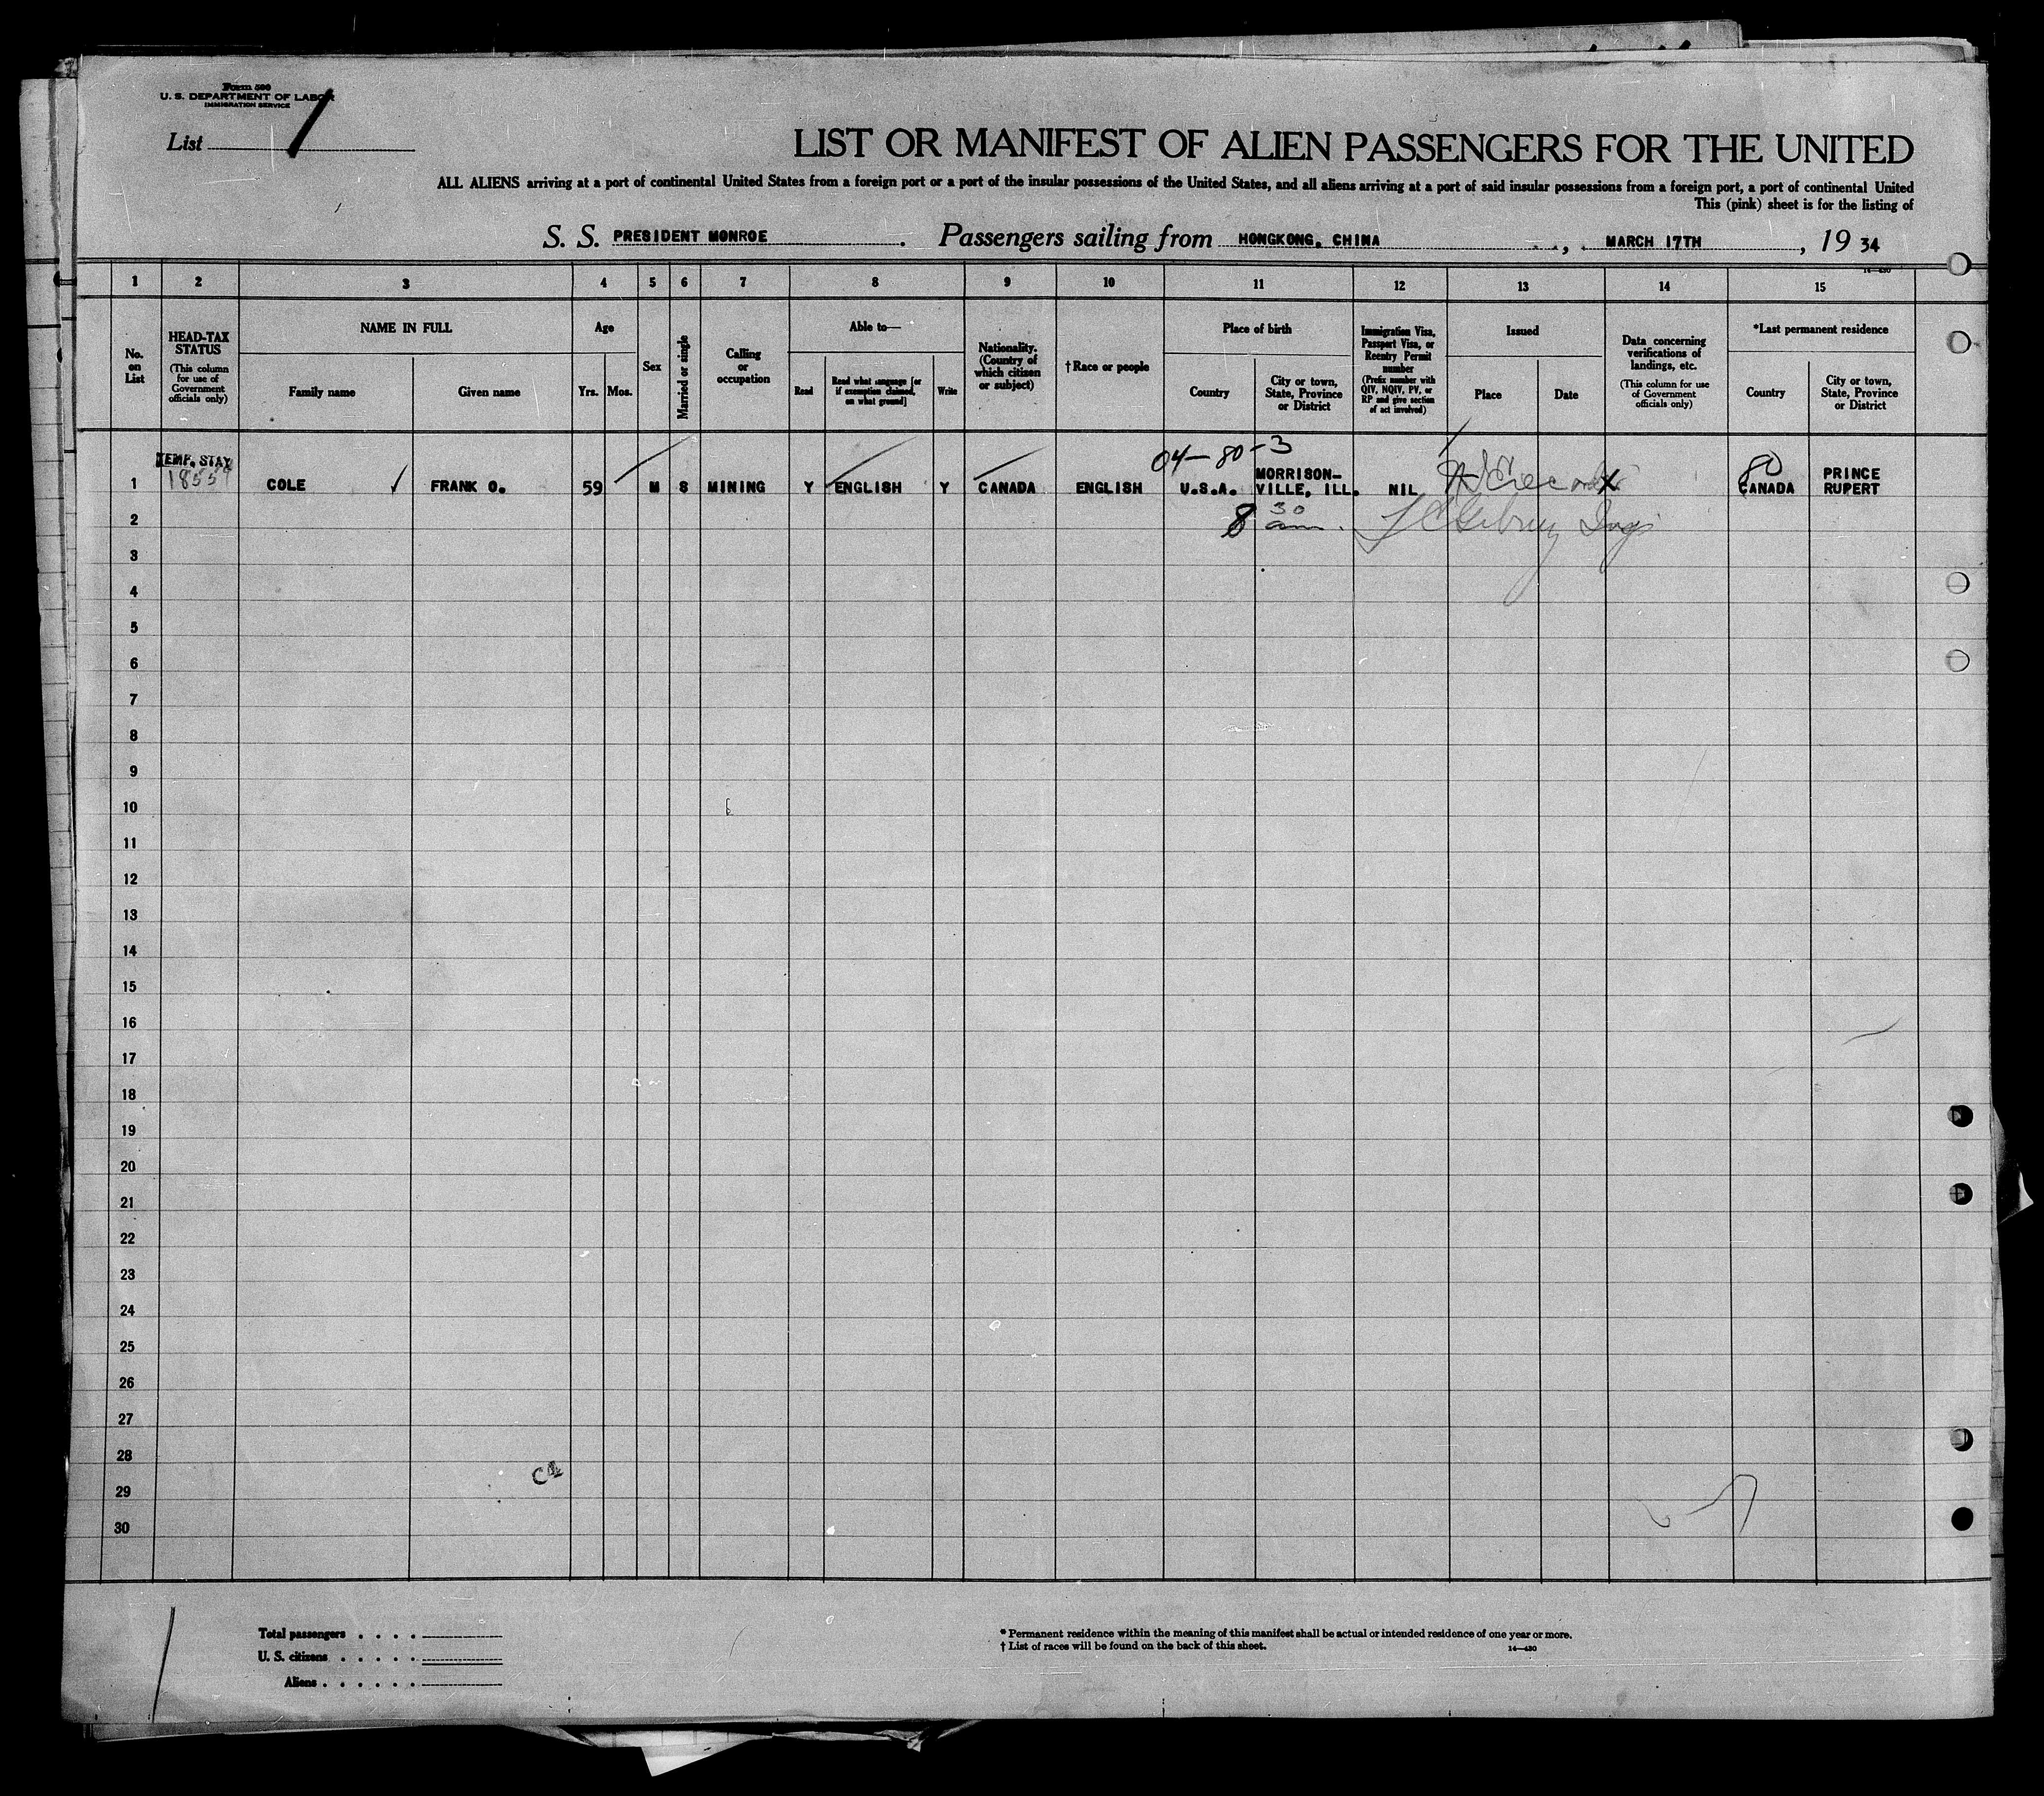 Form 500
U. S. DEPARTMENT OF LABOR
IMMIGRATION SERVICE
List 1
LIST OR MANIFEST OF ALIEN PASSENGERS FOR THE UNITED
ALL ALIENS arriving at a port of continental United States from a foreign port or a port of the insular possessions of the United States, and all aliens arriving at a port of said insular possessions from a foreign port, a port of continental United
This (pink) sheet is for the listing of
S. S. PRESIDENT MONROE. Passengers sailing from HONGKONG, CHINA, MARCH 17TH, 19 34
14—430
1 2 3 4 5 6 7 8 9 10 11 12 13 14 15
No. on List
HEAD-TAX STATUS
(This column for use of Government officials only)
NAME IN FULL
Family name
Given name
Age
Yrs. Mos.
Sex
Married or single
Calling or occupation
Able to—
Read
Read what language [or if exemption claimed, on what ground]
Write
Nationality. (Country of which citizen or subject)
†Race or people
Place of birth
Country
City or town, State, Province or District
Immigration Visa, Passport Visa, or Reentry Permit number
(Prefix number with QIV, NQIV, PV, or RP and give section of act involved)
Issued
Place
Date
Data concerning verifications of landings, etc.
(This column for use of Government officials only)
*Last permanent residence
Country
City or town, State, Province or District
04-80-3
TEMP. STAY
1 COLE FRANK O. 59 M S MINING Y ENGLISH Y CANADA ENGLISH U.S.A. MORRISON-VILLE, ILL. NIL 80 CANADA PRINCE RUPERT
2 8 30 am.
3
4
5
6
7
8
9
10
11
12
13
14
15
16
17
18
19
20
21
22
23
24
25
26
27
28
29
30
Total passengers . . . .
U. S. citizens . . . . .
Aliens . . . . . .
* Permanent residence within the meaning of this manifest shall be actual or intended residence of one year or more.
† List of races will be found on the back of this sheet.
14—430